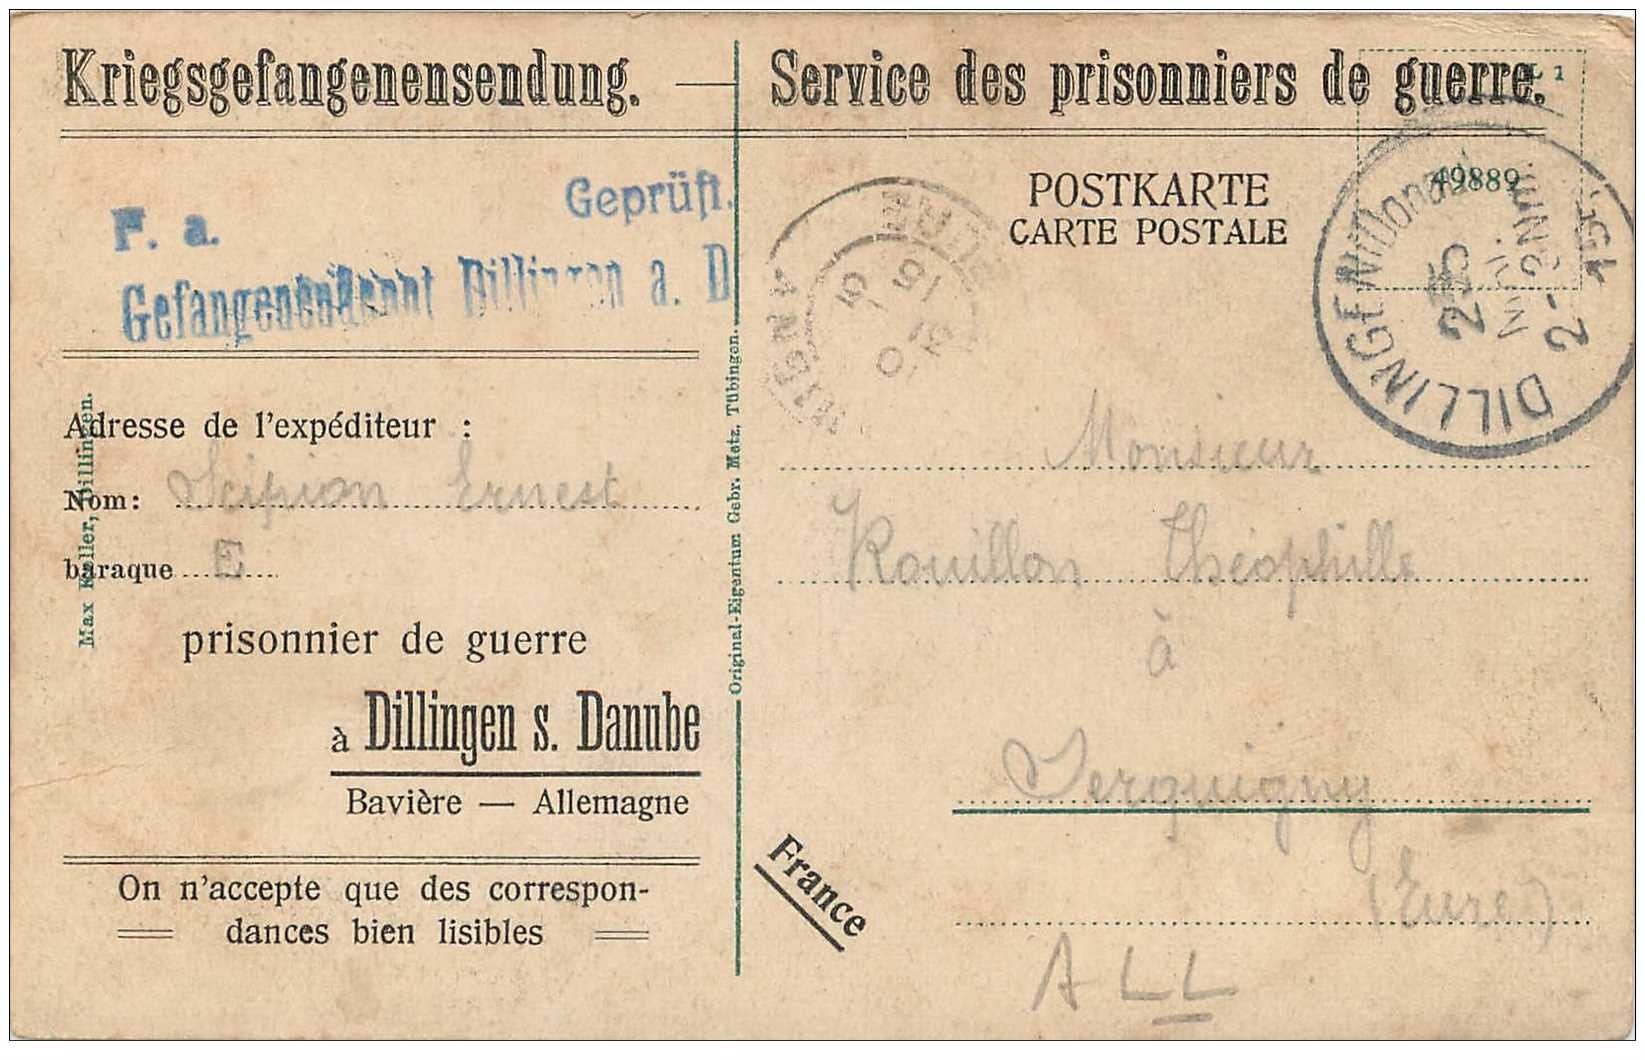 Kriegsgefangenensendung. — Service des prisonniers de guerre.
L 1
49889
POSTKARTE
CARTE POSTALE
Geprüft.
F. a.
Gefangenen Dillingen a. D
DILLINGEN (Donau)
2-3 Nm.
15.
EURE
15
5
31
Adresse de l'expéditeur :
Nom: Scipion Ernest
baraque E
prisonnier de guerre
à Dillingen s. Danube
Bavière — Allemagne
On n'accepte que des correspon-
dances bien lisibles
Max Keller, Dillingen.
Original-Eigentum Gebr. Metz, Tübingen.
Monsieur
Rouillon Théophille
à
Serquigny
(Eure)
France
ALL